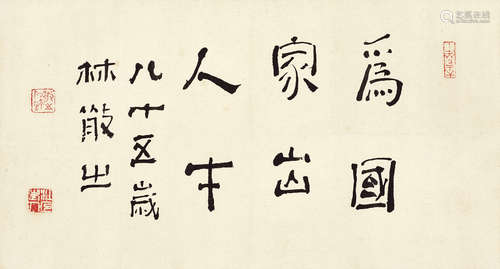 為國
家出
人才
八十五歲
林散之